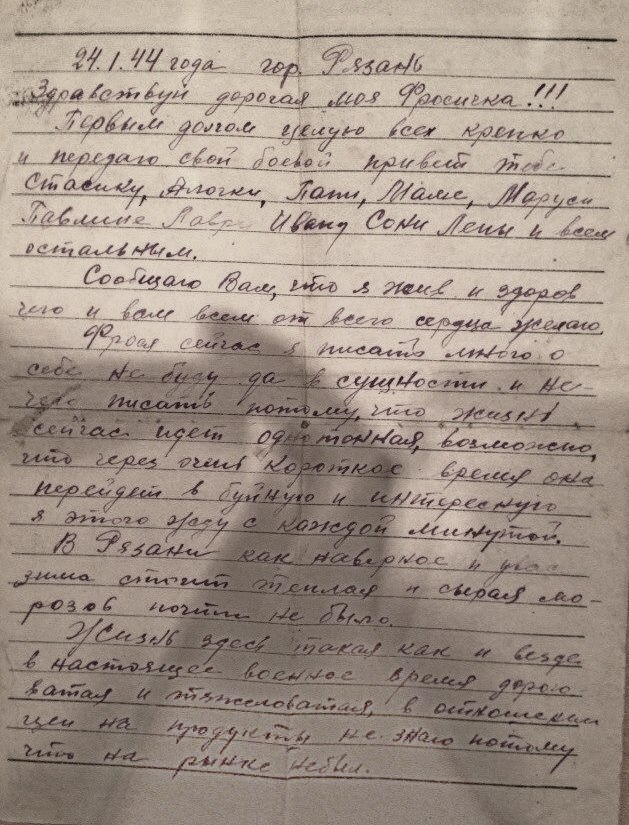 24.1.44 года гор. Рязань
Здравствуй дорогая моя Фросичка!!!
Первым долгом целую всех крепко
и передаю свой боевой привет тебе
Стасику, Алочки, Папи, Маме, Маруси
Павлине Лавру Ивану Сони Лены и всем
остальным.
Сообщаю Вам, что я жив и здоров
чего и вам всем от всего сердца желаю.
Фрося сейчас я писать много о
себе не буду да в сущности и не-
чего писать потому, что жизнь
сейчас идет однотонная, возможно,
что через очень короткое время она
перейдет в буйную и интересную
я этого жду с каждой минутой.
В Рязани как наверное и у вас
зима стоит теплая и сырая мо-
розов почти не было.
Жизнь здесь такая как и везде
в настоящее военное время дорого
ватая и тяжеловатая, в отношении
цен на продукты не знаю потому
что на рынке небыл.